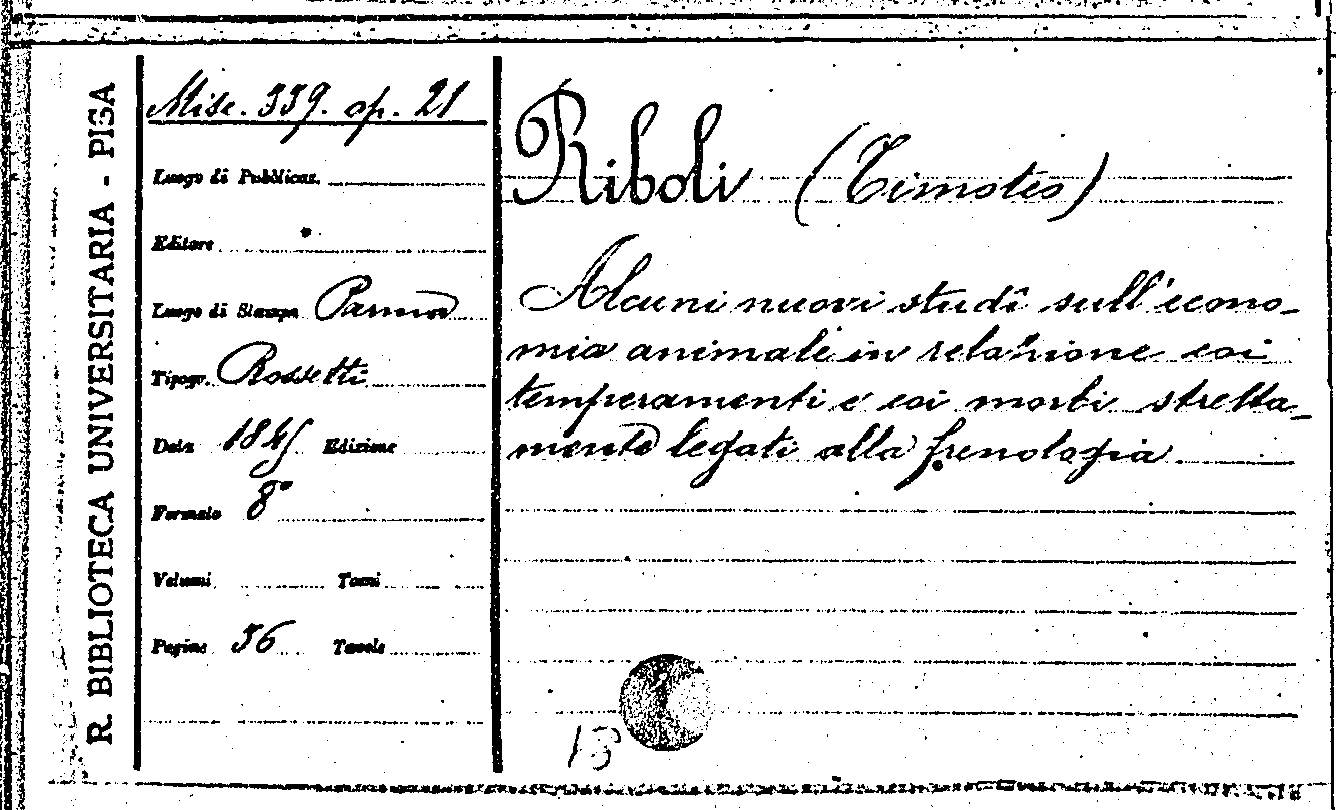 R. BIBLIOTECA UNIVERSITARIA - PISA
Misc. 339. op. 21
Luogo di Pubblicaz.
Editore
Luogo di Stampa Parma
Tipogr. Rossetti
Data 1845 Edizione
Formato 8°
Volumi Tomi
Pagine 56 Tavole
Riboli (Timoteo)
Alcuni nuovi studî sull'econo-
mia animale in relazione coi
temperamenti e coi morbi stretta-
mente legati alla frenologia